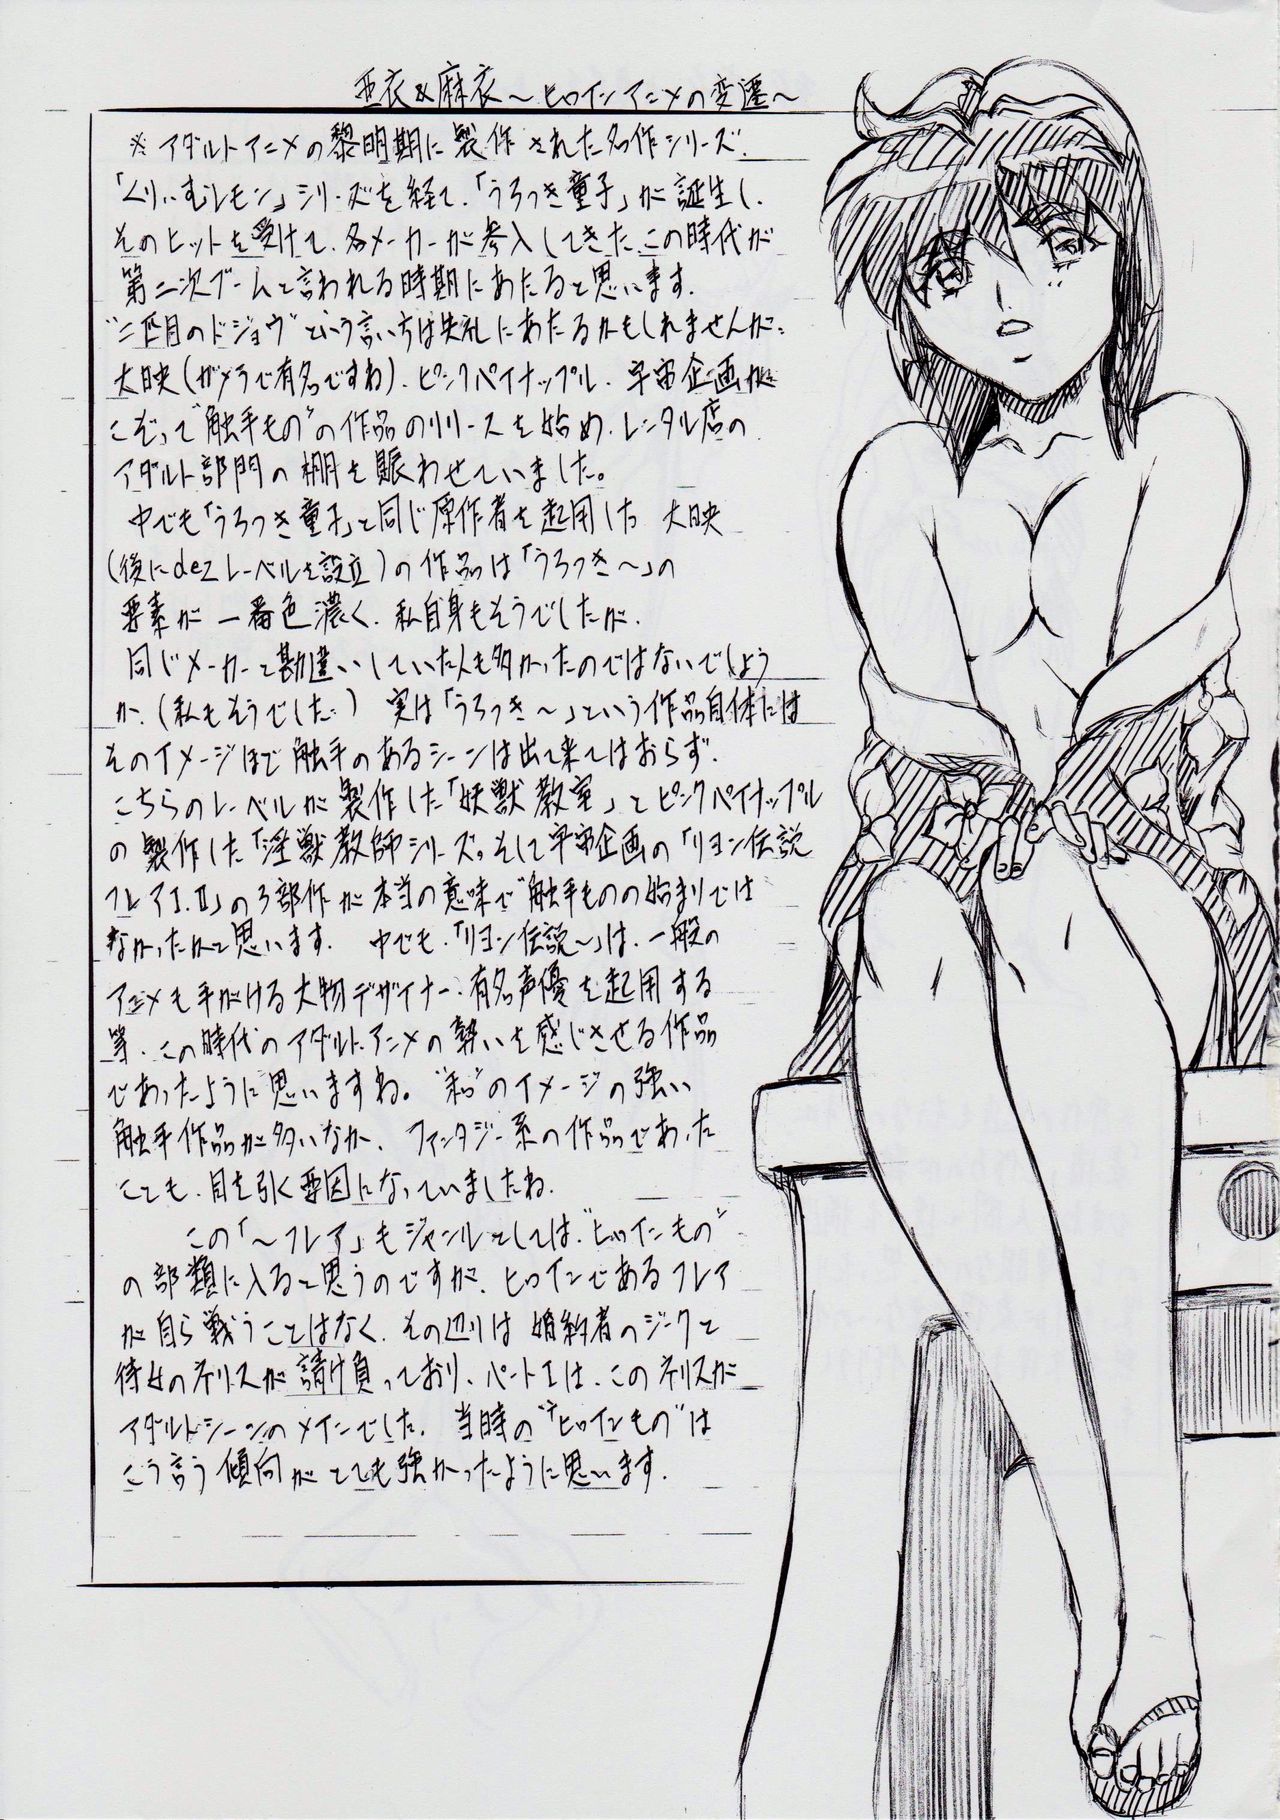 亜衣&麻衣〜ヒロインアニメの変遷〜
※アダルトアニメの黎明期に製作された名作シリーズ.
「くりぃむレモン」シリーズを経て、「うろつき童子」が誕生し、
そのヒットを受けて、各メーカーが参入してきたこの時代が
第二次ブームと言われる時期にあたると思います.
"二匹目のドジョウ"という言い方は失礼にあたるかもしれませんが、
大映(ガメラで有名ですね)、ピンクパイナップル、宇宙企画が
こぞって"触手もの"の作品のリリースを始め、レンタル店の
アダルト部門の棚を賑わせていました。
中でも「うろつき童子」と同じ原作者を起用した 大映
(後にdezレーベルを設立)の作品は「うろつき〜」の
要素が一番色濃く、私自身もそうでしたが、
同じメーカーと勘違いしていた人も多かったのではないでしょう
か.(私もそうでした.) 実は「うろつき〜」という作品自体には
そのイメージほど触手のあるシーンは出て来てはおらず、
こちらのレーベルが製作した「妖獣教室」とピンクパイナップル
の製作した「淫獣教師シリーズ」。そして宇宙企画の「リヨン伝説
フレアI.II」の3部作が本当の意味で"触手ものの始まりでは
なかったかと思います. 中でも、「リヨン伝説〜」は、一般の
アニメも手がける大物デザイナー、有名声優を起用する
等、この時代のアダルトアニメの勢いを感じさせる作品
であったように思いますね。"和"のイメージの強い
触手作品が多いなか、ファンタジー系の作品であった
ことも、目を引く要因になっていましたね.
この「〜フレア」もジャンルとしては"ヒロインもの"
の部類に入ると思うのですが、ヒロインであるフレア
が自ら戦うことはなく、その辺りは婚約者のジークと
侍女のネリスが請け負っており、パートIは、このネリスが
アダルトシーンのメインでした. 当時の"ヒロインもの"は
こう言う傾向がとても強かったように思います.